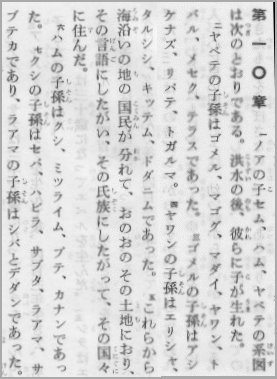 第一〇章　一ノアの子セム、ハム、ヤペテの系図
は次のとおりである。洪水の後、彼らに子が生れた。
二ヤペテの子孫はゴメル、マゴグ、マダイ、ヤワン、ト
バル、メセク、テラスであった。三ゴメルの子孫はアシ
ケナズ、リパテ、トガルマ。四ヤワンの子孫はエリシャ、
タルシシ、キッテム、ドダニムであった。五これらから
海沿いの地の国民が分れて、おのおのその土地におり、
その言語にしたがい、その氏族にしたがって、その国々
に住んだ。
六ハムの子孫はクシ、ミツライム、プテ、カナンであっ
た。七クシの子孫はセバ、ハビラ、サブタ、ラアマ、サ
ブテカであり、ラアマの子孫はシバとデダンであった。